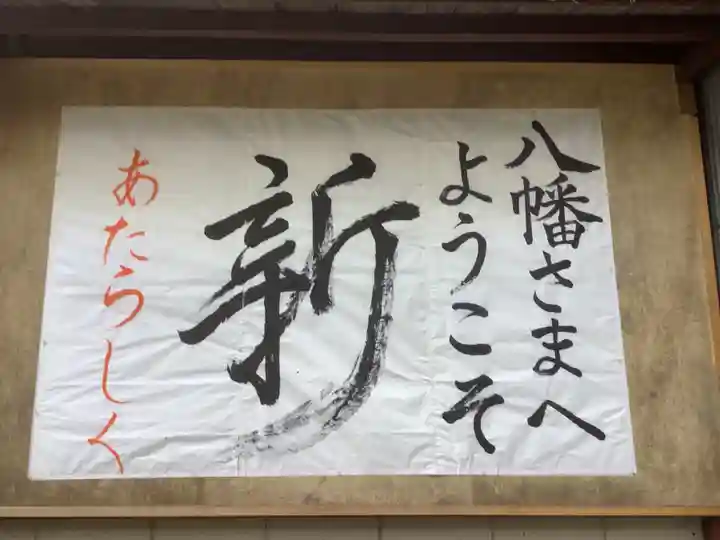 八幡さまへ
ようこそ
新
あたらしく